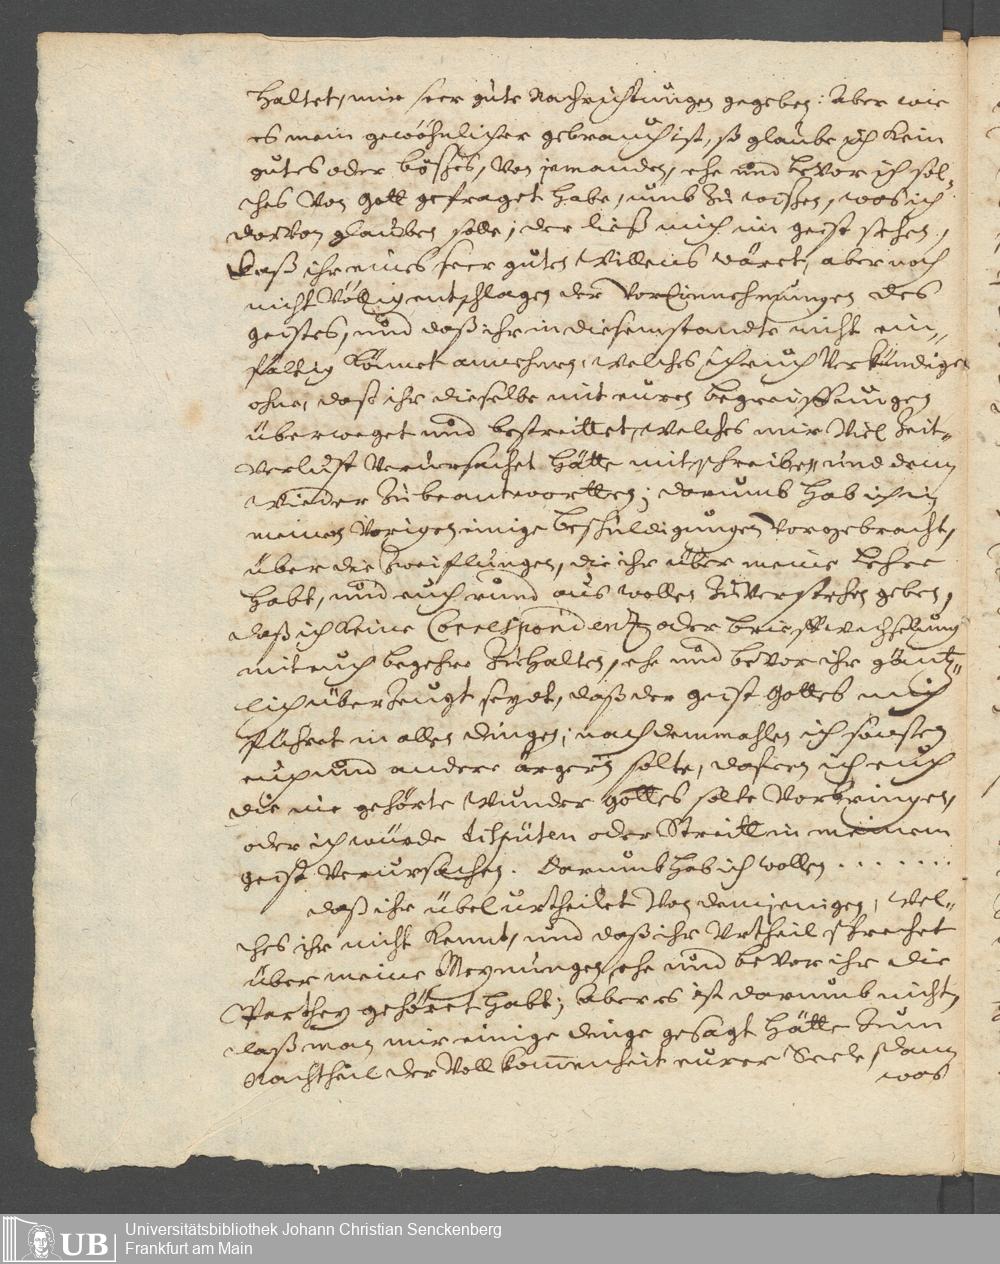 haltet, mir seer gute Nachrichtungen gegeben: Aber wie
es mein gewöhnlicher gebrauch ist, so glaube ich kein
gutes oder böses, von jemanden, ehe und bevor ich sol-
ches von Gott gefraget habe, umb zu wißen, was ich
darvon glauben solle; der ließ mich im geist sehen,
daß ihr eines seer guten Willens wäret, aber noch
nicht völlig entschlagen der Voreinnehmungen des
geistes, und daß ihr in diesem stande nicht ein-
fältig könnet annehmen, welches ich euch verkündige
ohne, daß ihr dieselbe mit euren begreiffungen
überweget und bestreittet, welches mir viel Zeit-
verlust verursachet hätte mit schreiben und dem
Wieder zu beantwortten; darumb hab ich in
meinen vorigen einige beschuldigungen vorgebracht,
über die zweiflungen, die ihr über meine Lehre
habt, und euch rund aus wollen zu verstehen geben,
daß ich keine Correspondentz oder brieffwechselung
mit euch begehre zu halten, ehe und bevor ihr gäntz-
lich überzeugt seydt, daß der geist Gottes mich
führet in allen dingen; nachdemmahlen ich sonsten
euch und andere ärgern solte, dafern ich euch
die nie gehörte Wunder gottes solte vorbringen,
oder ich würde disputen oder Streitt in meinem
geist verursachen. Darumb hab ich wollen . . . . . . .
daß ihr übel urtheilet von demjenigen, wel-
ches ihr nicht kennt, und daß ihr Urtheil sprechet
über meine Meynungen ehe und bevor ihr die
Parthey gehöret habt; Aber es ist darumb nicht,
daß man mir einige dinge gesagt hätte zum
Nachtheil der Vollkommenheit eurer Seele, dann
was
Universitätsbibliothek Johann Christian Senckenberg
Frankfurt am Main
UB